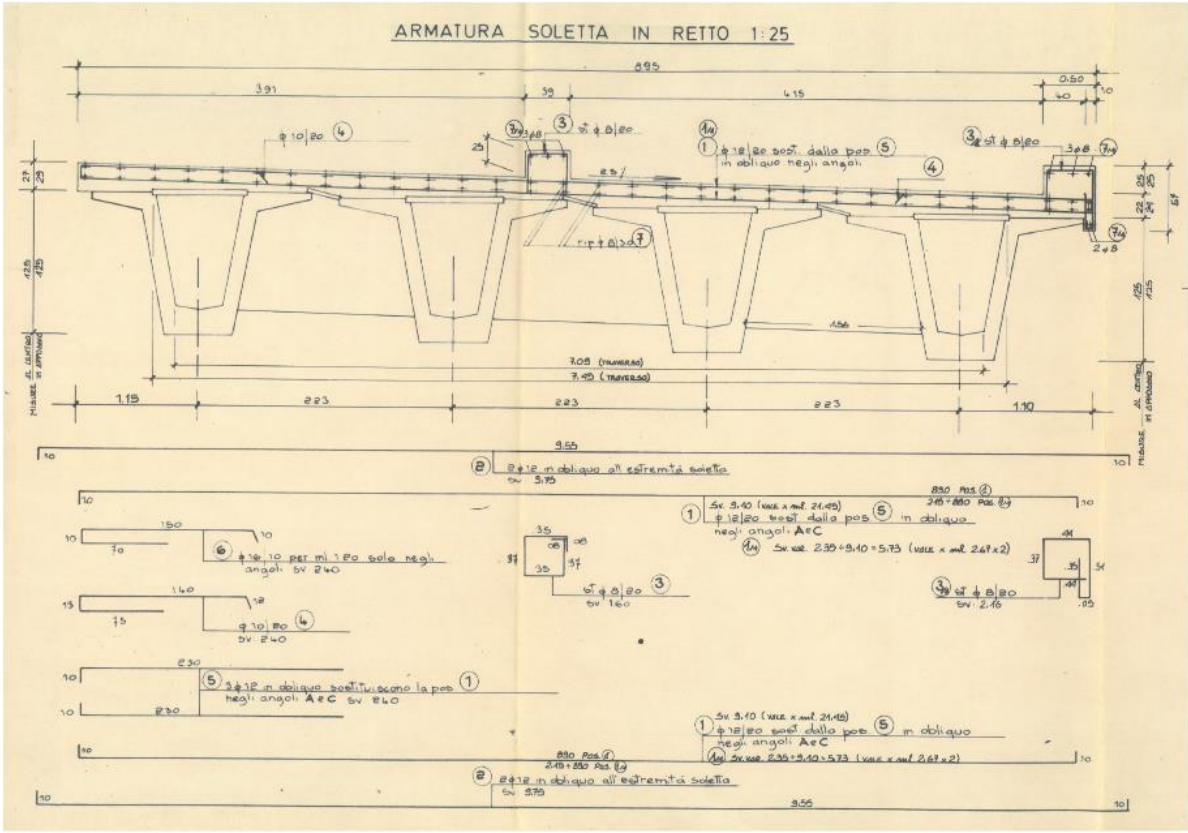 ARMATURA SOLETTA IN RETTO 1:25
895
391
39
415
0.50
40
10
φ 10/20 4
7/A 3φ8
3 st φ 8/20
1/A
1 φ 12/20 sost. dalla pos. 5
in obliquo negli angoli
3 st φ 8/20
3φ8 7/A
25
4
rip φ 8/30 7
7/A
2φ8
27
29
125
125
MISURE AL CENTRO
IN APPOGGIO
25
25
22
24
67
125
125
MISURE AL CENTRO
IN APPOGGIO
156
7.09 (TRAVERSO)
7.49 (TRAVERSO)
1.15
223
223
223
1.10
10
9.55
10
2 2φ12 in obliquo all'estremità soletta
sv 9.75
10
890 POS. 1
215÷890 POS. 1/A
10
Sv. 9.10 (VALE x ml. 21.45)
1 φ 12/20 sost dalla pos 5 in obliquo
negli angoli A e C
1/A Sv. var. 2.35÷9.10 = 5.73 (VALE x ml. 2.67x2)
150
10
70
10
6 φ 16/10 per ml. 1.20 solo negli
angoli sv 240
35
08
08
37
37
35
st φ 8/20 3
sv 1.60
44
37
35
51
44
.05
st φ 8/20
sv. 2.16
140
15
75
12
φ 10/20 4
sv 240
230
10
5 3φ12 in obliquo sostituiscono la pos 1
negli angoli A e C sv 240
10
230
Sv. 9.10 (VALE x ml. 21.45)
1 φ 12/20 sost dalla pos 5 in obliquo
negli angoli A e C
1/A Sv. var. 2.35÷9.10 = 5.73 (VALE x ml. 2.67x2)
10
890 POS. 1
215÷890 POS. 1/A
10
2 2φ12 in obliquo all'estremità soletta
sv 9.75
10
9.55
10